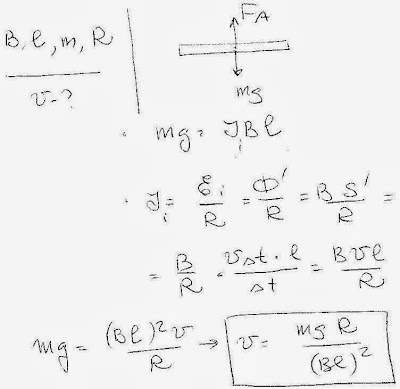 B, l, m, R
v - ?
F_A
mg
mg = J_i B l
J_i = ℰ_i/R = Φ'/R = B S'/R =
= B/R · vΔt · l/Δt = Bvl/R
mg = (Bl)²v/R → v = mgR/(Bl)²